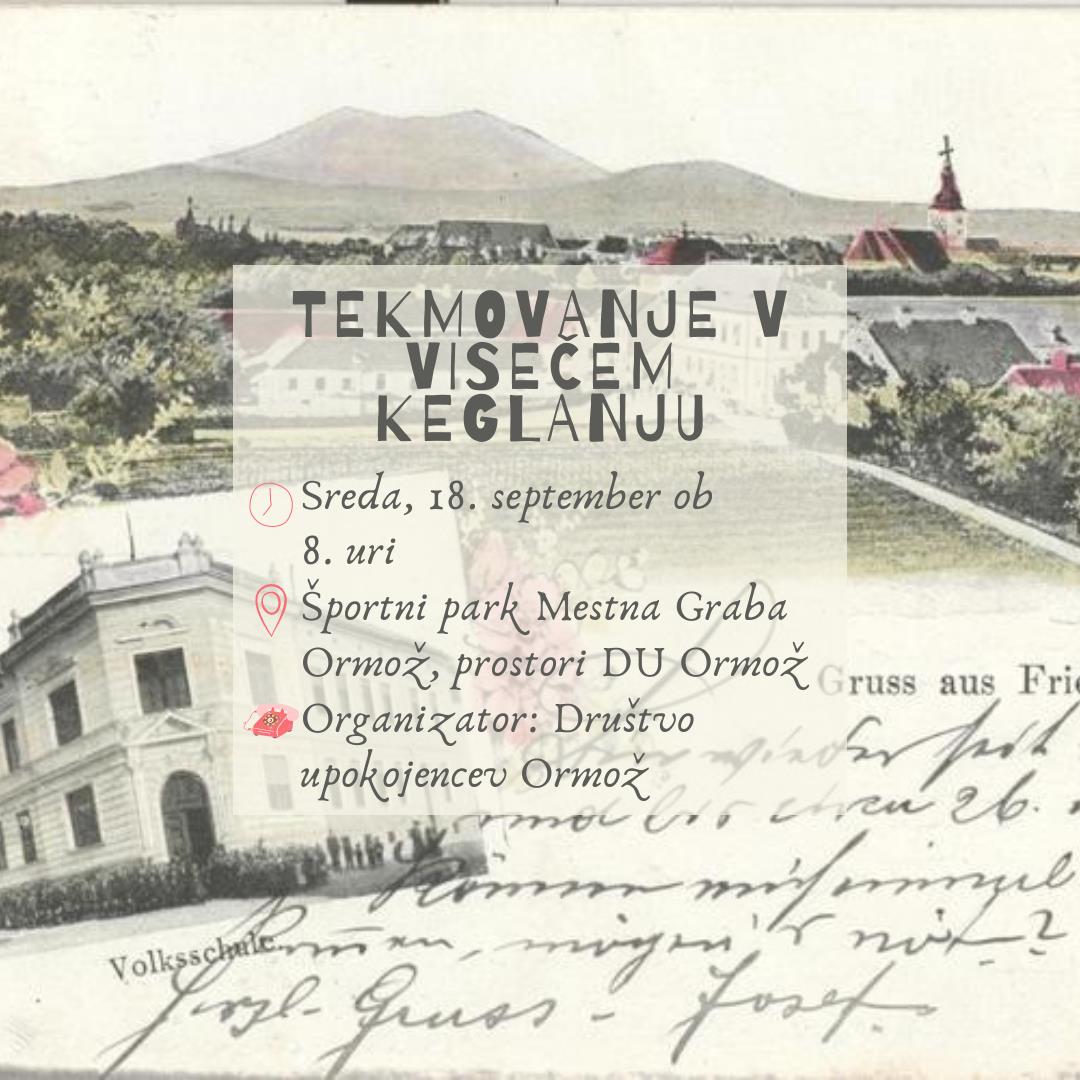 TEKMOVANJE V
VISEČEM
KEGLANJU
Sreda, 18. september ob
8. uri
Športni park Mestna Graba
Ormož, prostori DU Ormož
Organizator: Društvo
upokojencev Ormož
Gruss aus
wieder
26.
Volksschule.
Gruss - Josef.